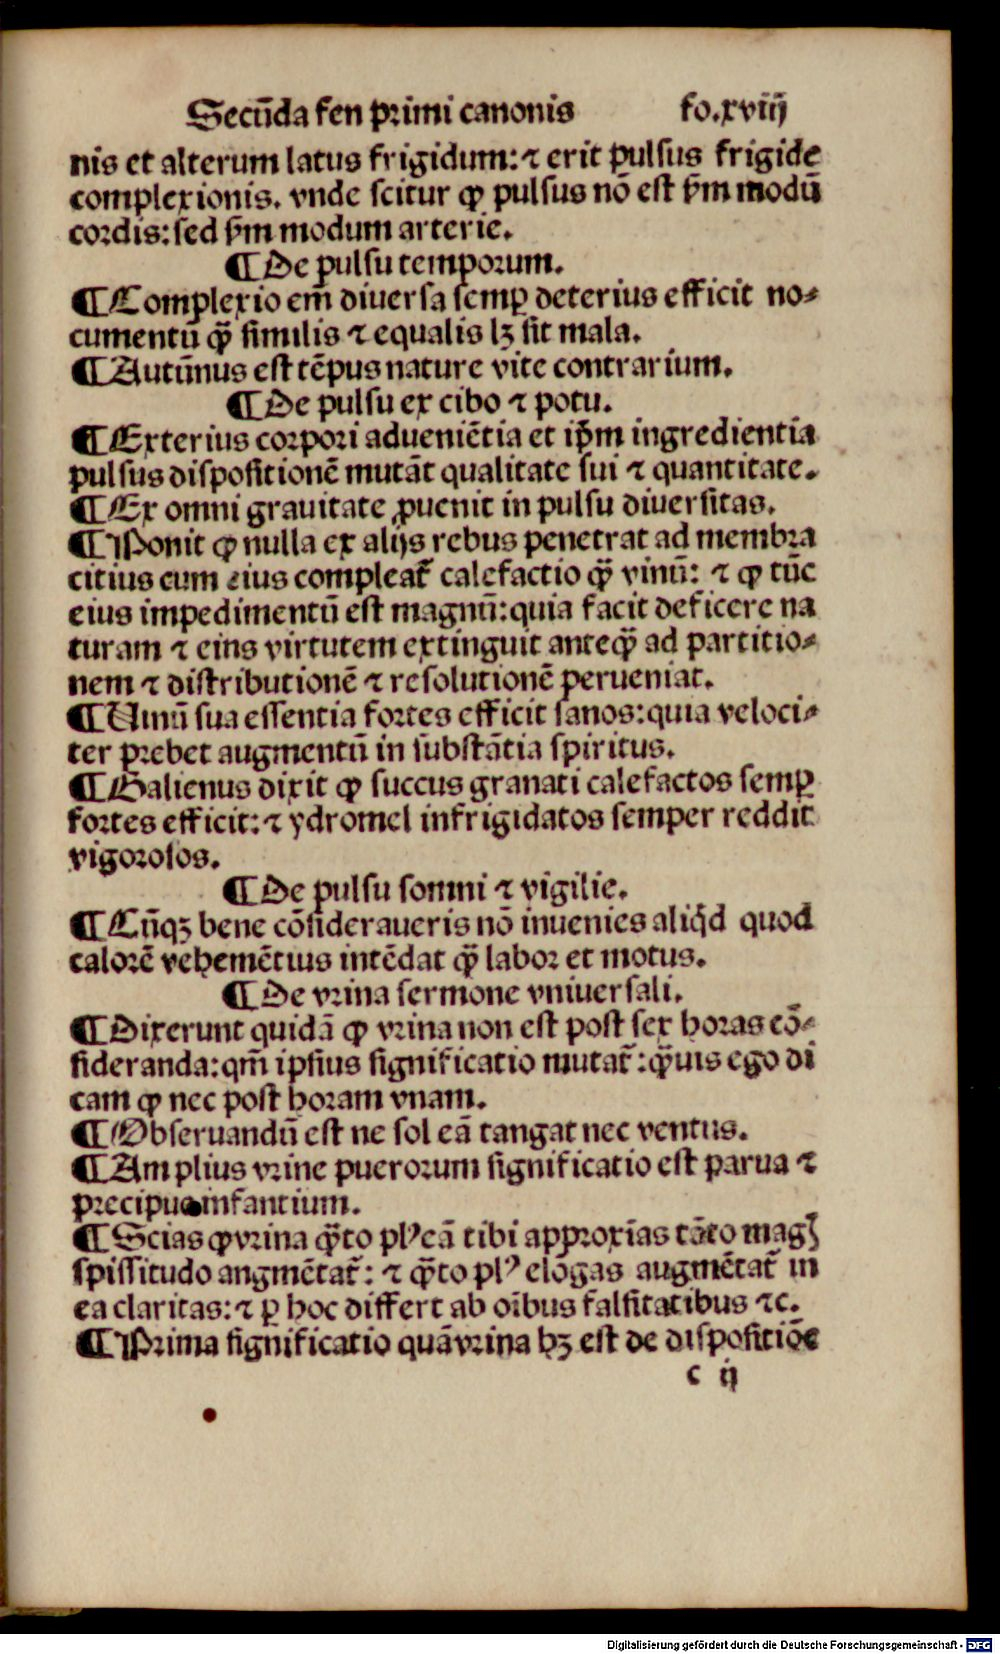 Secūda fen primi canonis fo.xviij
nis et alterum latus frigidum: ⁊ erit pulsus frigide
complexionis. vnde scitur ꝙ pulsus nō est ẜm modū
cordis: sed ẜm modum arterie.
¶ De pulsu temporum.
¶ Complexio em̄ diuersa semꝑ deterius efficit no⸗
cumentū qꝫ̄ similis ⁊ equalis lꝫ sit mala.
¶ Autūnus est tēpus nature vite contrarium.
¶ De pulsu ex cibo ⁊ potu.
¶ Exterius corpori adueniētia et ip̄m ingredientia
pulsus dispositionē mutāt qualitate sui ⁊ quantitate.
¶ Ex omni grauitate ꝓuenit in pulsu diuersitas.
¶ Ponit ꝙ nulla ex alijs rebus penetrat ad membra
citius cum eius compleat᷑ calefactio qꝫ̄ vinū: ⁊ ꝙ tūc
eius impedimentū est magnū: quia facit deficere na
turam ⁊ eins virtutem extinguit anteqꝫ̄ ad partitio⸗
nem ⁊ distributionē ⁊ resolutionē perueniat.
¶ Uinū sua essentia fortes efficit sanos: quia veloci⸗
ter prebet augmentū in substātia spiritus.
¶ Galienus dixit ꝙ succus granati calefactos semꝑ
fortes efficit: ⁊ ydromel infrigidatos semper reddit
vigorosos.
¶ De pulsu somni ⁊ vigilie.
¶ Cūqꝫ bene cōsideraueris nō inuenies aliq̇d quod
calorē vehemētius intēdat qꝫ̄ labor et motus.
¶ De vrina sermone vniuersali.
¶ Dixerunt quidā ꝙ vrina non est post sex horas cō⸗
sideranda: qm̄ ipsius significatio mutat᷑: qꝫ̄uis ego di
cam ꝙ nec post horam vnam.
¶ Obseruandū est ne sol eā tangat nec ventus.
¶ Amplius vrine puerorum significatio est parua ⁊
precipue infantium.
¶ Scias ꝙ vrina qꝫ̄to plꝰ eā tibi approxīas tāto magꝭ
spissitudo angmētat᷑: ⁊ qꝫ̄to plꝰ elōgas augmētat᷑ in
ea claritas: ⁊ ꝑ hoc differt ab oībus falsitatibus ⁊c.
¶ Prima significatio quā vrina hꝫ est de dispositiōe
c ij
Digitalisierung gefördert durch die Deutsche Forschungsgemeinschaft - DFG